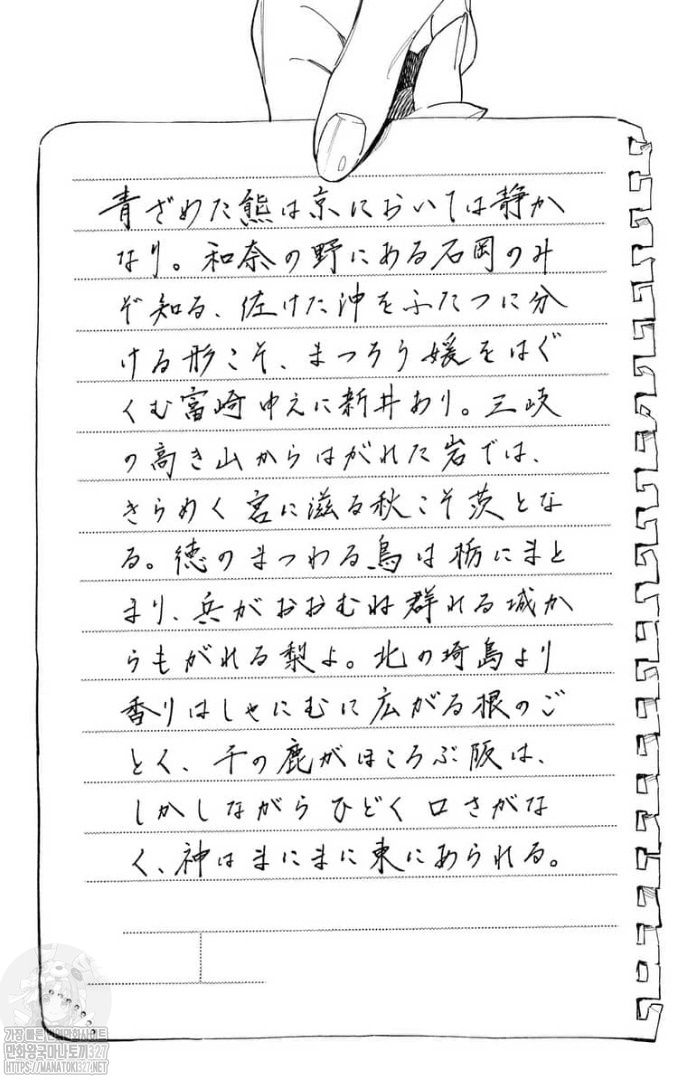 青ざめた熊は京においては静か
なり。和奈の野にある石岡のみ
ぞ知る、佐けた沖をふたつに分
ける形こそ、まつろう媛をはぐ
くむ富崎ゆえに新井あり。三岐
の高き山からはがれた岩では、
きらめく宮に滋る秋こそ茨とな
る。徳のまつわる鳥は栃にまと
まり、兵がおおむね群れる城か
らもがれる梨よ。北の埼島より
香りはしゃにむに広がる根のご
とく、千の鹿がほころぶ阪は、
しかしながらひどく口さがな
く、神はまにまに東にあられる。
가장 빠른 웹만화사이트
만화왕국마나토끼327
HTTPS://MANATOKI327.NET